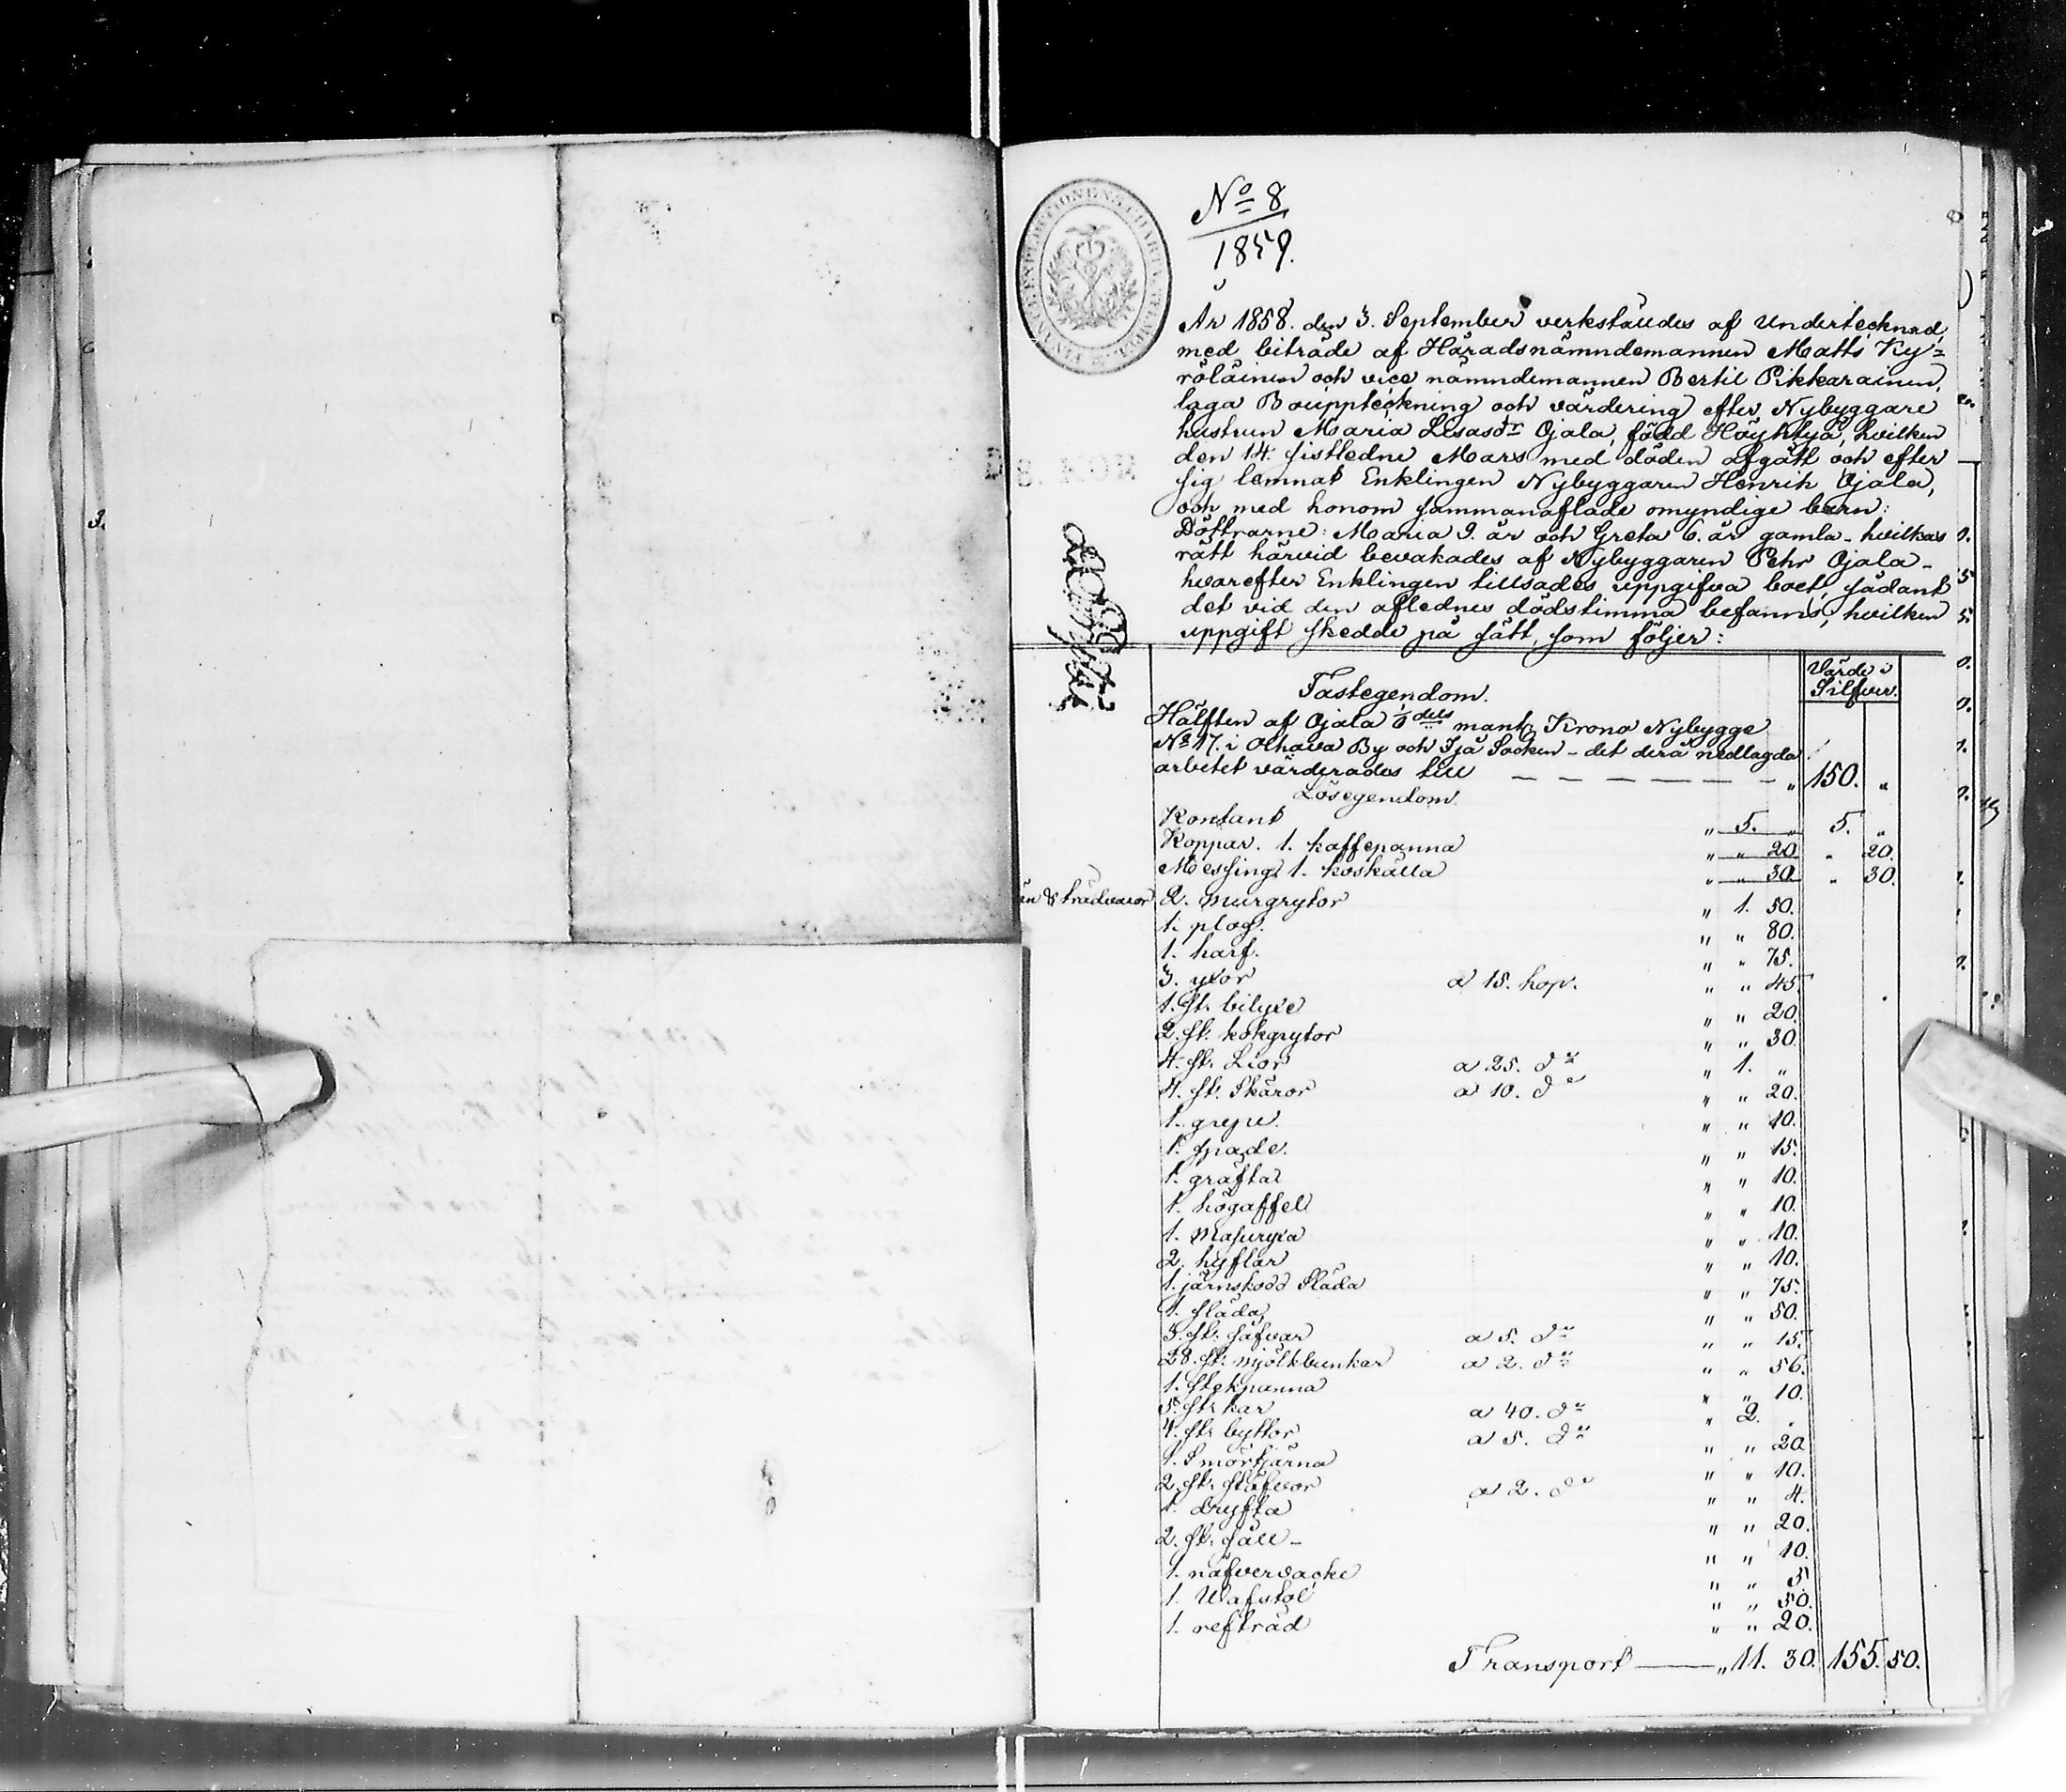 No 8
1859.
År 1858. den 3. September verkstäldes af Undertecknad,
med biträde af Häradsnämndemannen Matts Ky=
röläinen och vice nämndemannen Bertil Pikkarainen,
laga Bouppteckning och värdering efter Nybyggare
hustrun Maria Lisasdr Ojala, född Höyhtyä, hvilken
den 14 sistledne Mars med döden afgått och efter
sig lemnat Enklingen Nybyggaren Henrik Ojala,
och med honom sammanaflade omyndige barn:
Döttrarne: Maria 9. år och Greta 6. år gamla - hvilkas
rätt härvid bevakades af Nybyggaren Pehr Ojala -
hvarefter Enklingen tillsades uppgifva boet, sådant
det vid den aflednes dödstimma befanns, hvilken
uppgift skedde på sätt, som följer:
Värde i
Silfver.
Fastegendom.
Hälften af Ojala dels mantl Krono Nybygge
No 17. i Olhava By och Ijå Socken - det derå nedlagda
arbetet värderades till — — — — — — „ 150. „
Lösegendom.
Kontant „ 5. „ 5. „
Koppar. 1. kaffepanna „ „ 20. „ 20.
Messing 1. koskälla „ „ 30. „ 30.
än & trädvaror 2. murgrytor „ 1. 50.
1. plog. „ „ 80.
1. harf. „ „ 75.
3. yxor a 15. kop. „ „ 45.
1. st. bilyxe „ „ 20.
2. st. kokgrytor „ „ 30.
4. st. Lior a 25. do „ 1. „
4. st. Skäror a 10. do „ „ 20.
1. grepe. „ „ 10.
1. spade. „ „ 15.
1. gräfta „ „ 10.
1. högaffel „ „ 10.
1. Masuryxa „ „ 10.
2. hyflar „ „ 10.
1. järnskodd Släda „ „ 75.
1. släda „ „ 50.
3. st. såfvar a 5. do „ „ 15.
28. st. mjölkbunkar a 2. do „ „ 56.
1. stekpanna „ „ 10.
5. st. kar a 40. do „ 2. „
4. st. byttor a 5. do „ „ 20.
1. Smörtjärna „ „ 10.
2. st. stäfvor a 2. do „ „ 4.
1. dryfta „ „ 20.
2. st. såll - „ „ 10.
1. näfvervacke „ „ 5.
1. Wäfstol „ „ 50.
1. reftråd „ „ 20.
Transport — „ 11. 30. 155. 50.